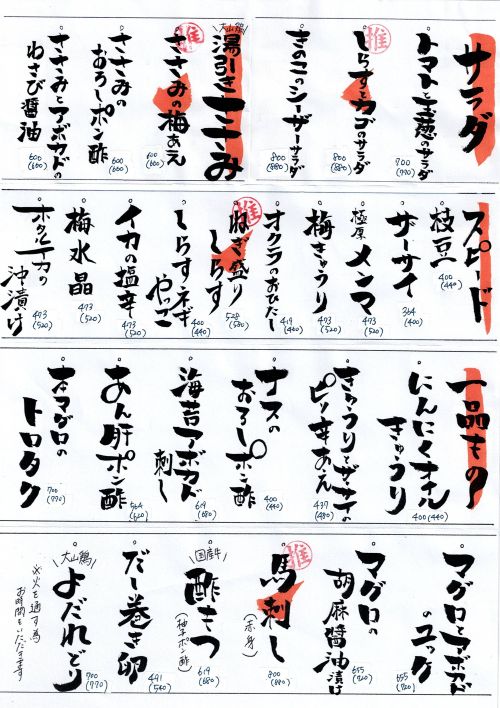 サラダ
トマトと玉葱のサラダ
700
(770)
推
しらすとカブのサラダ
800
(880)
きのこのシーザーサラダ
800
(880)
大山鶏
湯引きささみ
推
ささみの梅あえ
600
(660)
ささみの
おろしポン酢
600
(660)
ささみとアボカドの
わさび醤油
600
(660)
スピード
枝豆
400
(440)
ザーサイ
364
(400)
極厚
メンマ
473
(520)
梅きゅうり
473
(520)
オクラのおひたし
419
(440)
推
ねぎ盛り
しらす
528
(580)
しらすネギ
やっこ
400
(440)
イカの塩辛
473
(520)
梅水晶
473
(520)
ホタルイカの
沖漬け
473
(520)
一品もの
にんにくオイル
きゅうり
400
(440)
きゅうりとザーサイの
ピリ辛あえ
437
(480)
ナスの
おろしポン酢
400
(440)
海苔アボカド
刺し
619
(680)
あん肝ポン酢
564
(620)
本マグロの
トロタク
700
(770)
マグロとアボカド
のユッケ
655
(720)
マグロの
胡麻醤油漬け
655
(720)
推
馬刺し
(赤身)
800
(880)
国産牛
酢もつ
(柚子ポン酢)
619
(680)
だし巻き卵
491
(540)
大山鶏
よだれどり
700
(770)
※火を通す為
お時間をいただきます